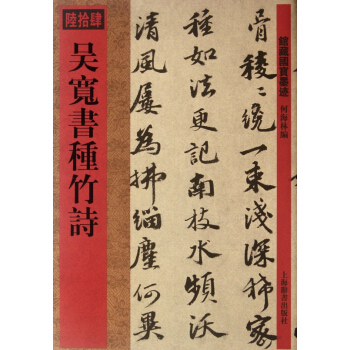 館藏國寶墨迹
何海林編
上海辭書出版社
骨稜〻繞一束淺深稀密
種如法更記南枝水頻沃
清風屢為拂緇塵何異
陸拾肆
吴寬書種竹詩